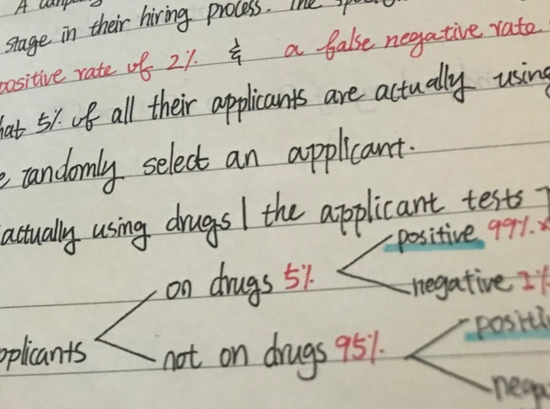 A
stage in their hiring process. The
positive rate of 2% & a false negative rate
hat 5% of all their applicants are actually using
randomly select an applicant.
actually using drugs | the applicant tests
positive 99%
on drugs 5%
negative 1%
pplicants
positi
not on drugs 95%
nega